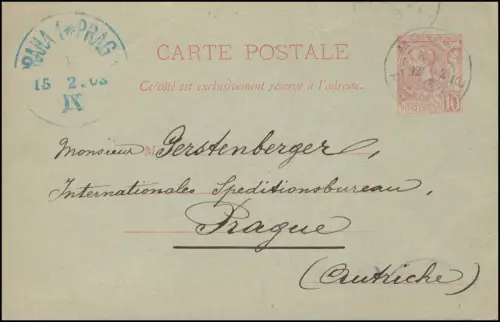 PRAHA 1 * PRAG
15 2.03
IX
CARTE POSTALE
Ce côté est exclusivement réservé à l'adresse.
10
Monsieur M Gerstenberger,
Internationales Speditionsbureau,
Prague
(Autriche)